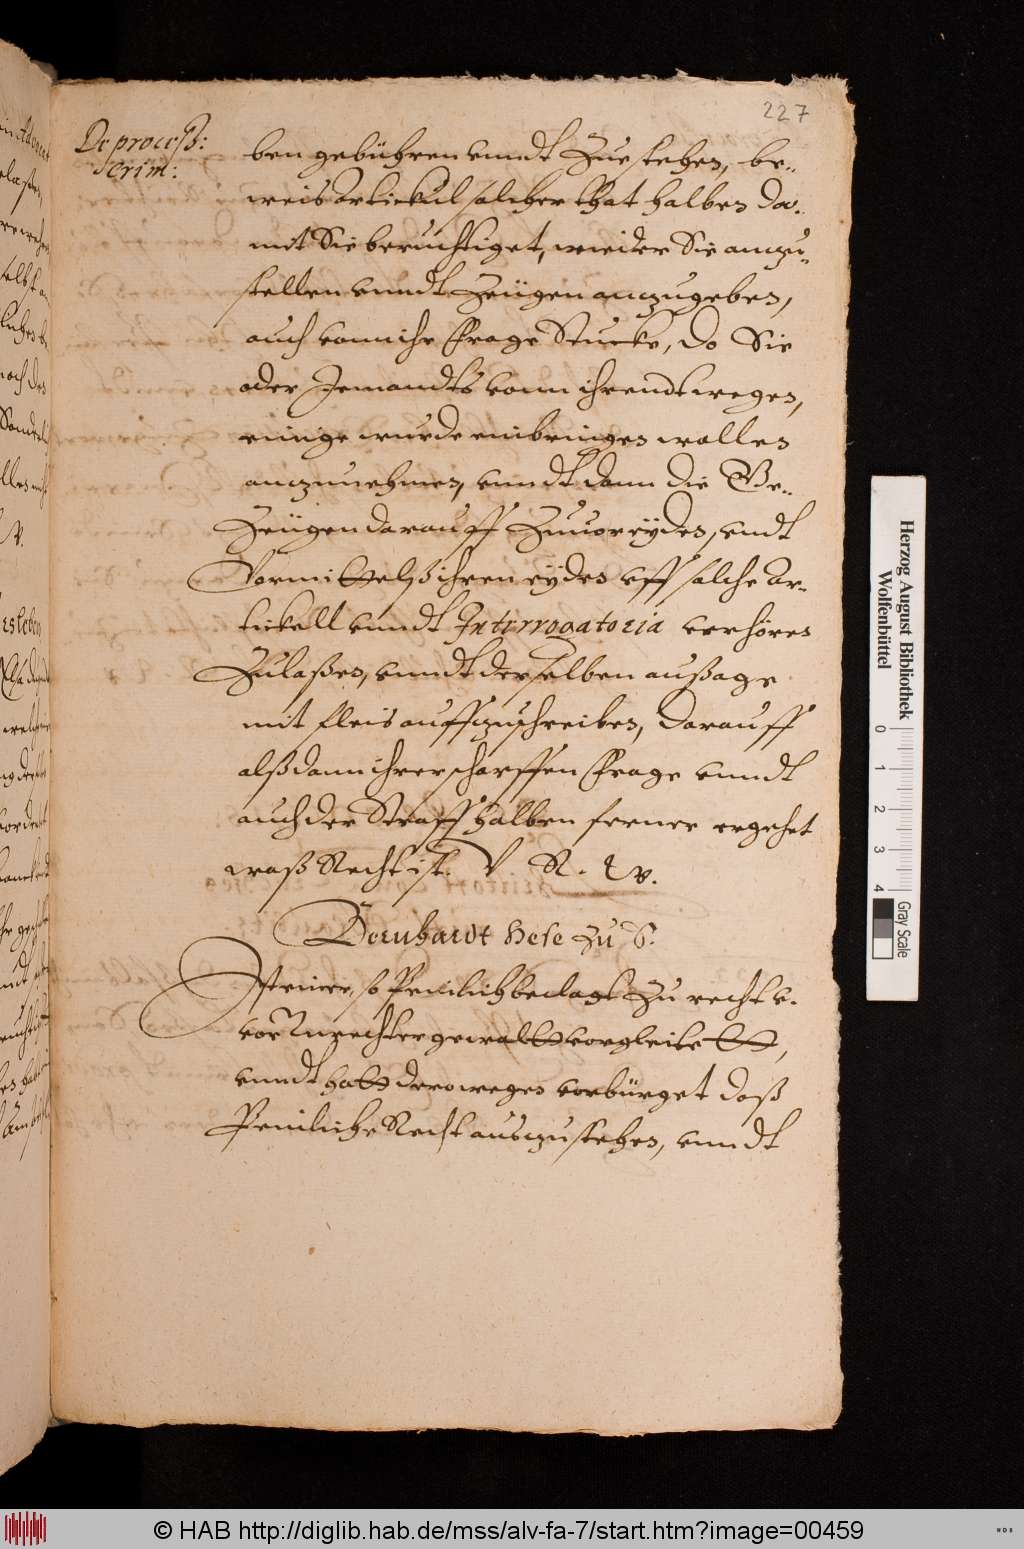 227
De process:
crim:
ben gebühren vnndt Zuestehen, be-
weis artickul solcher that halben da-
mit Sie beruchtiget, wieder Sie anzu-
stellen vnndt Zeugen anzugeben,
auch vonn ihr Frage Stucke, do Sie
oder Jemandts vonn ihrendtwegen,
einige wurde einbringen wollen
anzunehmen, vnndt dann die Ge-
Zeugen darauff Zuuoreyden, vndt
Vormittelß ihren eyden vff solche Ar-
tickell vnndt Interrogatoria verhören
Zulaßen, vnndt derselben außage
mit fleis auffzuschreiben, darauff
alßdann ihrer scharffen Frage vnndt
auch der Straff halben ferner ergehet
waß Recht ist. V. R. w.
Bernhardt Hese Zu S.
so Peinlich beclagt Zu recht
vor Vnrechter gewaltt vorgleitett,
vnndt hatt derowegen vorbürget daß
Peinliche Recht auszustehen, vnndt
Herzog August Bibliothek
Wolfenbüttel
0 1 2 3 4
Gray Scale
© HAB http://diglib.hab.de/mss/alv-fa-7/start.htm?image=00459